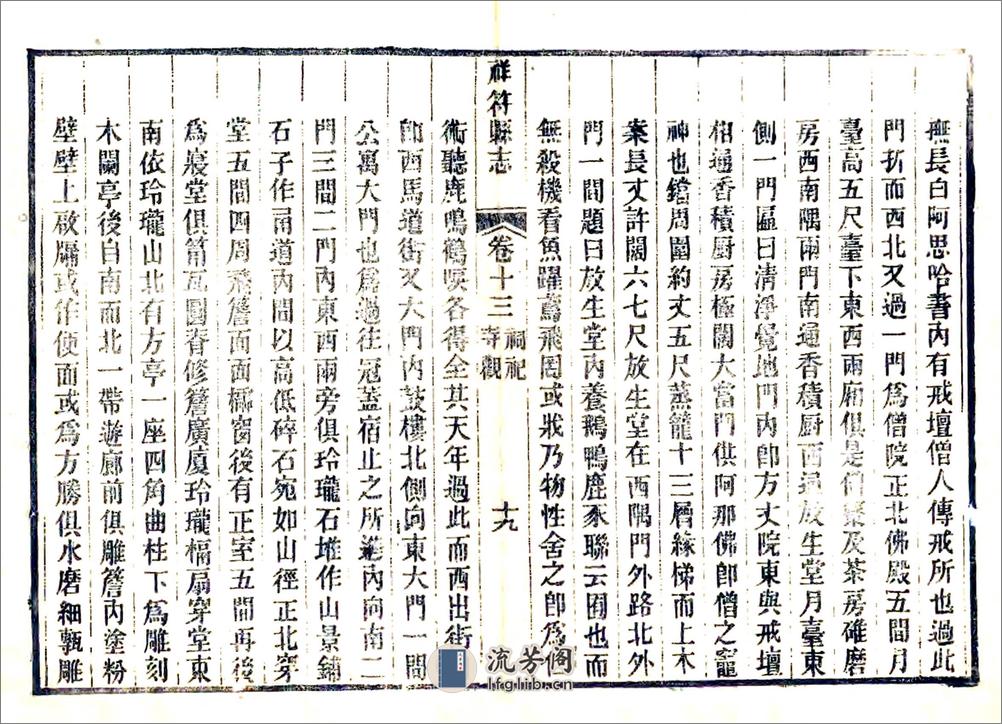 無長白阿思哈書內有戒壇僧人傳戒所也過此
門折而西北又過一門爲僧院正北佛殿五間月
臺高五尺臺下東西兩廂俱是僧寮及茶房碓磨
房西南隅兩門南通香積厨西通放生堂月臺東
側一門匾曰清淨覺地門內卽方丈院東與戒壇
相通香積厨房極闊大當門供阿那佛卽僧之竈
神也鐺周圍約丈五尺蒸籠十三層緣梯而上木
案長丈許闊六七尺放生堂在西隅門外路北外
門一間題曰放生堂內養鵝鴨鹿豕聯云囿也而
無殺機看魚躍鳶飛罔或戕乃物性舍之卽爲
術聽鹿鳴鶴唳各得全其天年過此而西出街
卽西馬道街又大門內鼓樓北側向東大門一間
公寓大門也爲過往冠蓋宿止之所進內向南二
門三間二門內東西兩旁俱玲瓏石堆作山景鋪
石子作甬道內間以高低碎石宛如山徑正北穿
堂五間四周飛簷面面櫺窗後有正室五間再後
爲寢堂俱筩瓦圓脊修簷廣廈玲瓏槅扇穿堂東
南依玲瓏山北有方亭一座四角曲柱下爲雕刻
木闌亭後自南而北一帶遊廊前俱雕簷內塗粉
壁壁上啟牖或作便面或爲方勝俱水磨細甎雕
祥符縣志
卷十三
祠祀
寺觀
十九
流芳阁
lfglib.cn